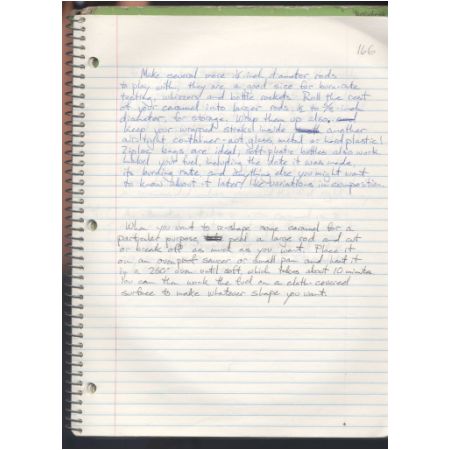 166
Make several more ⅛ inch diameter rods
to play with, they are a good size for burn-rate
testing, whizzers and bottle rockets. Roll the rest
of your caramel into larger rods, ½ to ¾ inch
diameter, for storage. Wrap them up also, and
keep your wrapped sticks inside another
airtight container - glass, metal or hard plastic!
Ziploc bags are ideal, soft plastic bottles also work.
Label your fuel, including the date it was made,
its burning rate and anything else you might want
to know about it later, like variations in composition.
When you want to re-shape some caramel for a
particular purpose, peel a large rod and cut
or break off as much as you want. Place it
on an ovenproof saucer or small pan and heat it
in a 250° oven until soft, which takes about 10 minutes.
You can then work the fuel on a cloth-covered
surface to make whatever shape you want.